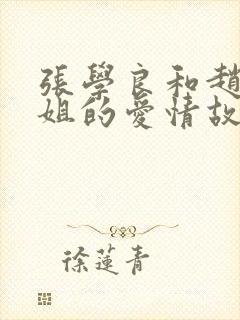 張學良和趙
姐的愛情故
徐蓮青